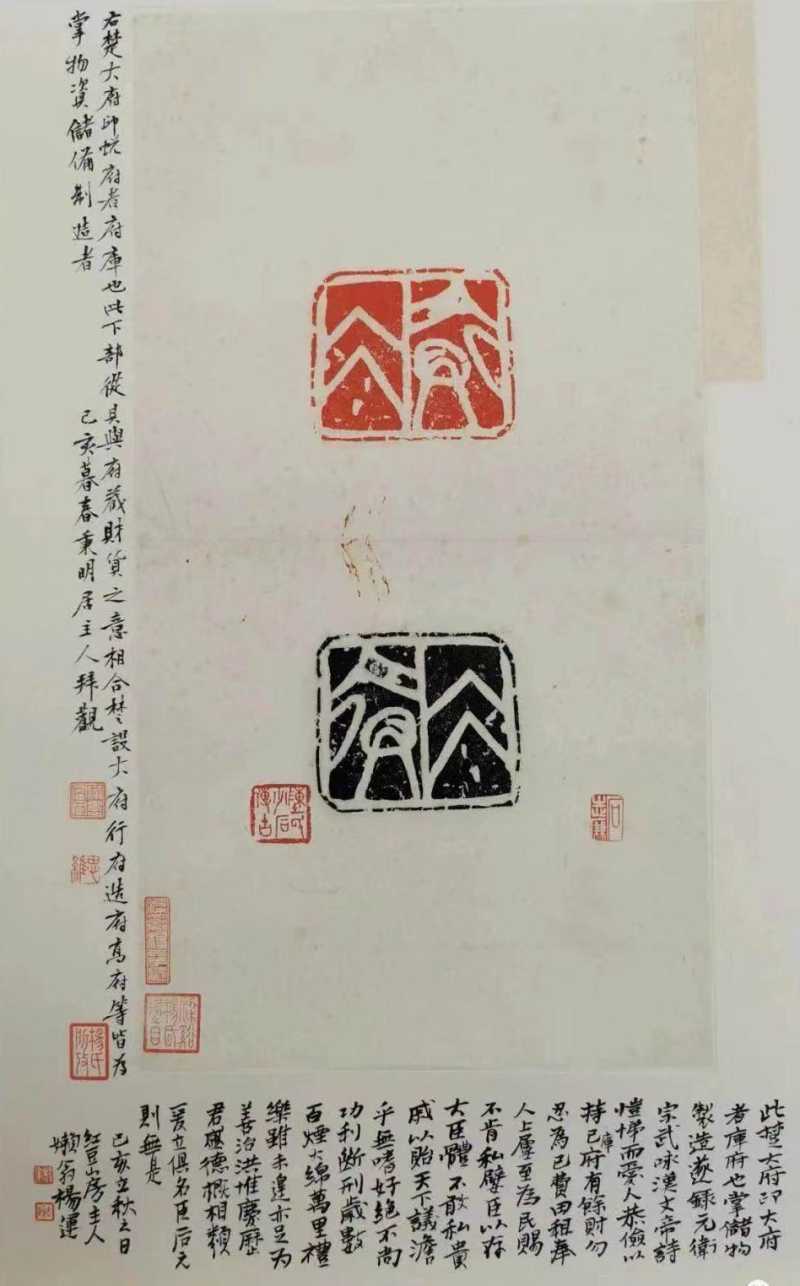 大府
右楚大府印府者府庫也此下部從貝與府藏財貨之意相合楚設大府行府造府高府等皆為
掌物資儲備制造者
己亥暮春秉明居主人拜觀
此楚大府印大府
者庫府也掌儲物
製造遂録元衛
宗武咏漢文帝詩
愷悌而愛人恭儉以
持己府庫有餘財勿
忍為己費田租奉
人上屢至為民賜
不肯私嬖臣以存
大臣體不敢私貴
戚以貽天下議澹
乎無嗜好絕不尚
功利斷刑歲數
百煙火綿萬里禮
樂雖未遑亦足為
善治洪惟慶歷
君儷德概相類
爰立俱名臣后元
則無是
己亥立秋之日
紅豆山房主人
嬾翁楊運